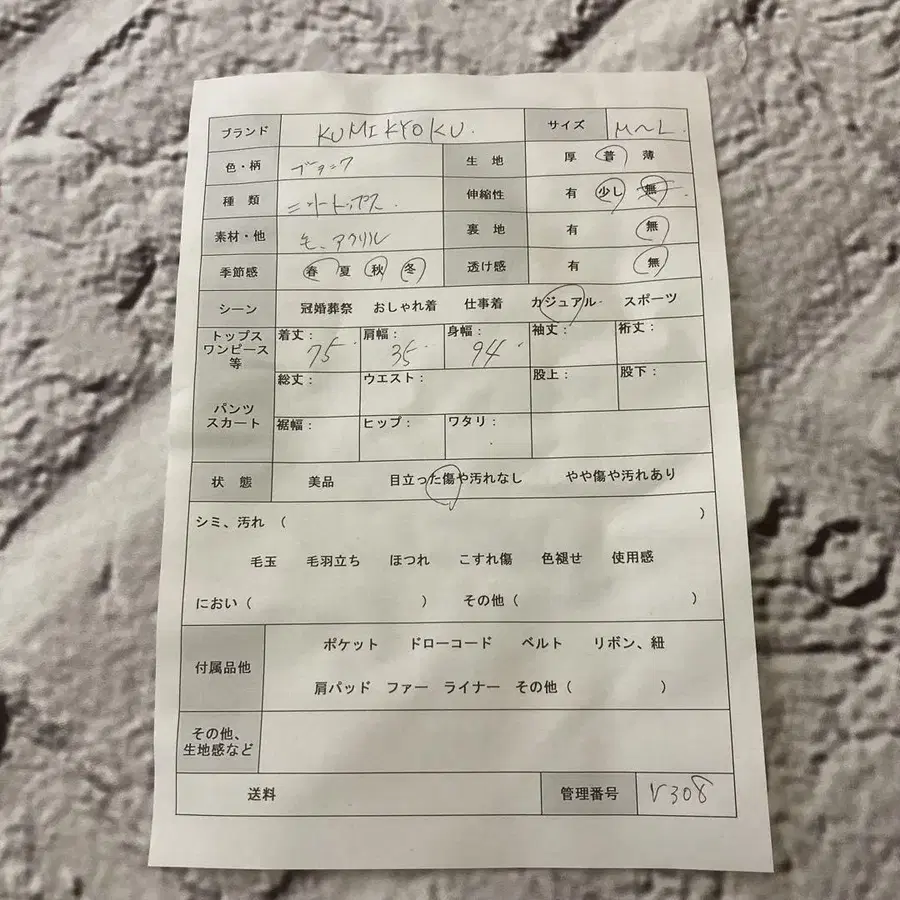 ブランド KUMIKYOKU. サイズ M〜L.
色・柄 ブラック 生地 厚 普 薄
種類 ニットトップス. 伸縮性 有 少し 無
素材・他 毛、アクリル 裏地 有 無
季節感 春 夏 秋 冬 透け感 有 無
シーン 冠婚葬祭 おしゃれ着 仕事着 カジュアル・ スポーツ
トップス
ワンピース
等
着丈： 75 肩幅： 35 身幅： 94 袖丈： 裄丈：
パンツ
スカート
総丈： ウエスト： 股上： 股下：
裾幅： ヒップ： ワタリ：
状態 美品 目立った傷や汚れなし やや傷や汚れあり
シミ、汚れ（ ）
毛玉 毛羽立ち ほつれ こすれ傷 色褪せ 使用感
におい（ ） その他（ ）
付属品他
ポケット ドローコード ベルト リボン、紐
肩パッド ファー ライナー その他（ ）
その他、
生地感など
送料 管理番号 V308